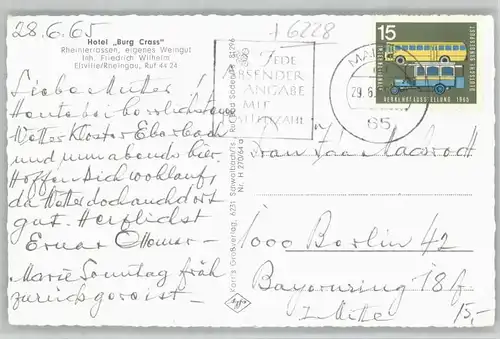 28.6.65
+6228
Hotel „Burg Crass"
Rheinterrassen, eigenes Weingut
Inh. Friedrich Wilhelm
Eltville/Rheingau, Ruf 44 24
Liebe Mutter
Heute bei herrlichstem
Wetter Kloster Eberbach
und nun abends hier.
Hoffen Dich wohlauf u.
da Wetter doch auch dort
gut. Herzlichst
Ottomar –
Marie Sonntag früh
zurückgereist –
JEDE
ABSENDER
ANGABE
MIT
POSTLEITZAHL
MAINZ
29.6.
65
15
DEUTSCHE BUNDESPOST
VERKEHRSAUSSTELLUNG 1965
Korr's Großverlag, 6231 Schwalbach/Ts., Ruf Bad Soden/Ts. 81296
Nr. H 270/64 a
Agfa
Frau Ida
1000 Berlin 42
Bayernring 18 f
15,–